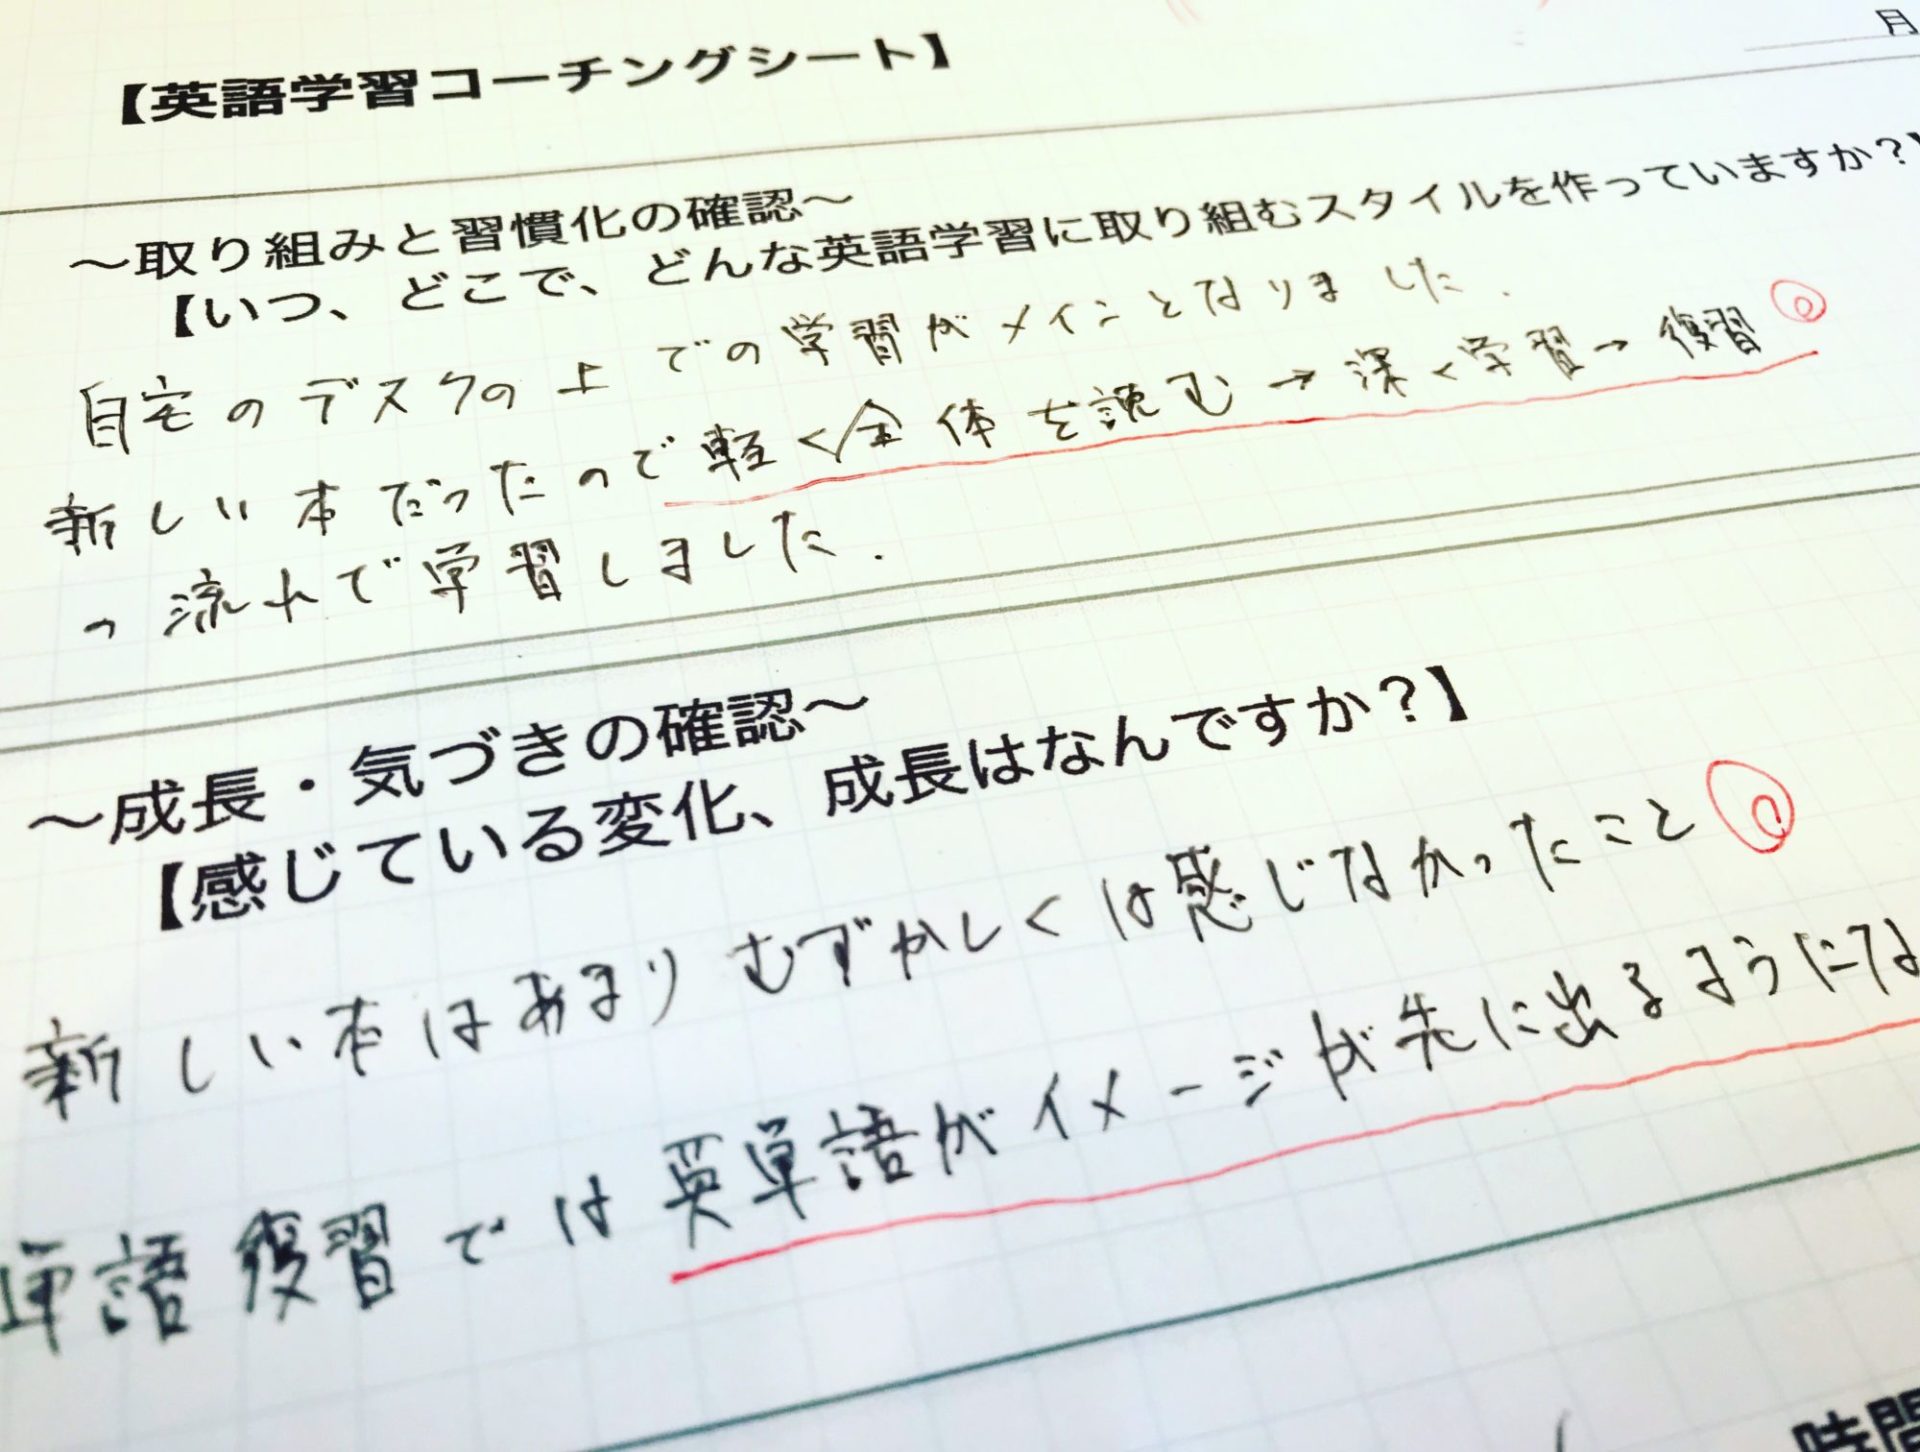 【英語学習コーチングシート】
月
～取り組みと習慣化の確認～
【いつ、どこで、どんな英語学習に取り組むスタイルを作っていますか？】
自宅のデスクの上での学習がメインとなりました.
新しい本だったので軽く全体を読む→深く学習→復習
の流れで学習しました.
～成長・気づきの確認～
【感じている変化、成長はなんですか？】
新しい本はあまりむずかしくは感じなかったこと
単語復習では英単語がイメージが先に出るようにな
時間